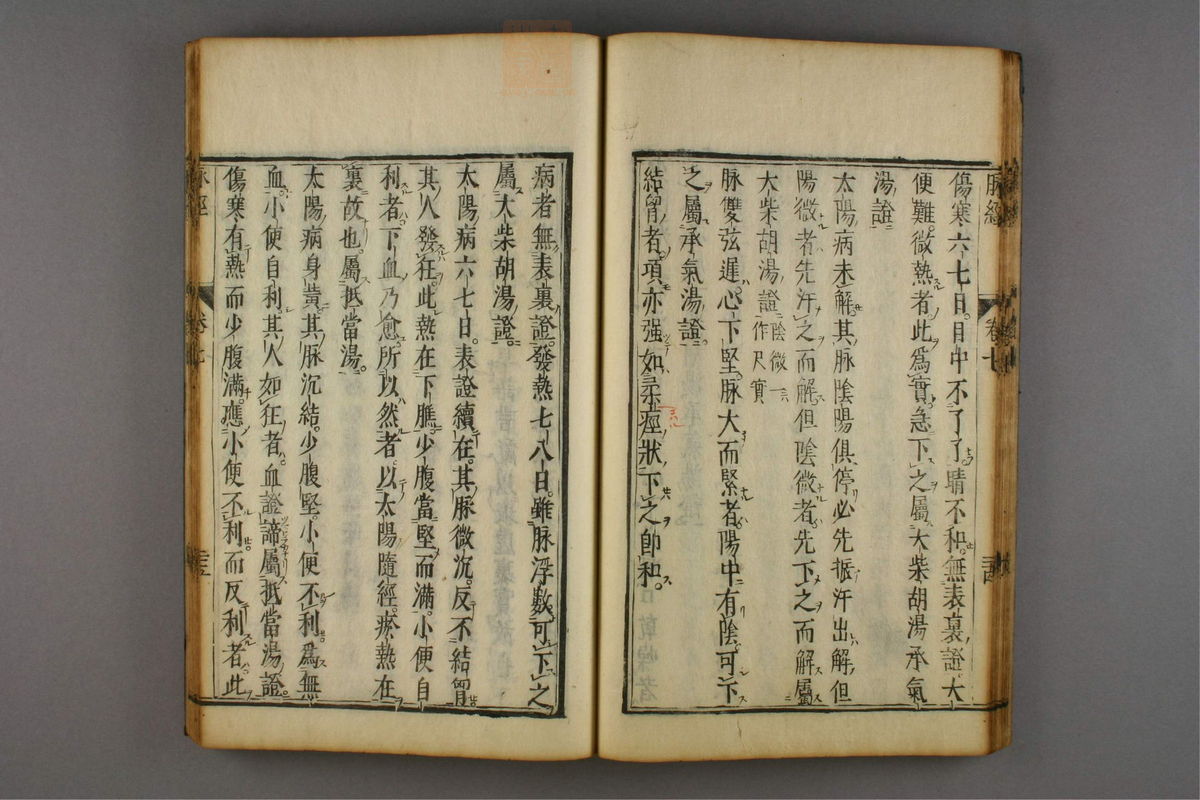 脉經
卷七
傷寒六七日。目中不了了。睛不和。無表裏證。大
便難。微熱者。此爲實。急下之。屬大柴胡湯承氣
湯證
太陽病未解。其脉陰陽俱停。必先振汗出解。但
陽微者。先汗之而解。但陰微者。先下之而解。屬
大柴胡湯證 陰微一作尺實
脉雙弦遲。心下堅。脉大而緊者。陽中有陰。可下
之。屬承氣湯證。
結胷者。項亦强。如柔痙狀。下之即和。
病者無表裏證。發熱七八日。雖脉浮數。可下之。
屬大柴胡湯證。
太陽病六七日。表證續在。其脉微沉。反不結胷。
其人發狂。此熱在下膲。少腹當堅而滿。小便自
利者。下血乃愈。所以然者。以太陽隨經。瘀熱在
裏故也。屬抵當湯。
太陽病。身黃。其脉沉結。少腹堅。小便不利。爲無
血。小便自利。其人如狂者。血證諦。屬抵當湯證。
傷寒有熱。而少腹滿。應小便不利。而反利者。此